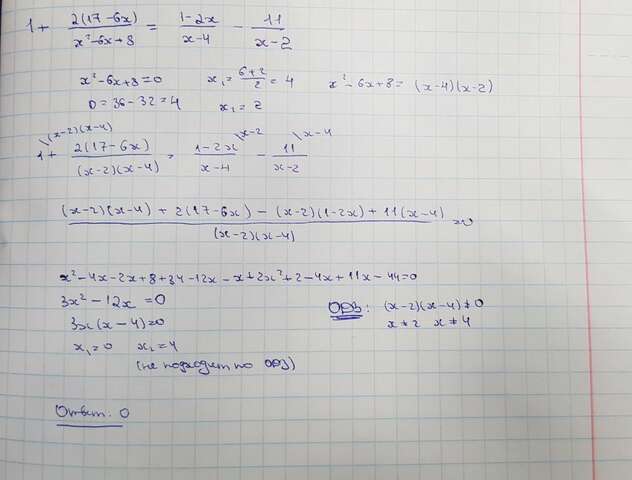 1 + 2(17-6x)/(x²-6x+8) = (1-2x)/(x-4) - 11/(x-2)
x²-6x+8=0   x₁ = (6+2)/2 = 4   x²-6x+8 = (x-4)(x-2)
D = 36-32 = 4   x₁ = 2
1\(x-2)(x-4) + 2(17-6x)/((x-2)(x-4)) = (1-2x)/(x-4)\x-2 - 11/(x-2)\x-4
((x-2)(x-4) + 2(17-6x) - (x-2)(1-2x) + 11(x-4))/((x-2)(x-4)) = 0
x²-4x-2x+8+34-12x-x+2x²+2-4x+11x-44=0
3x²-12x=0   ОДЗ: (x-2)(x-4)≠0
3x(x-4)=0   x≠2   x≠4
x₁=0   x₂=4
(не подходит по ОДЗ)
Ответ: 0